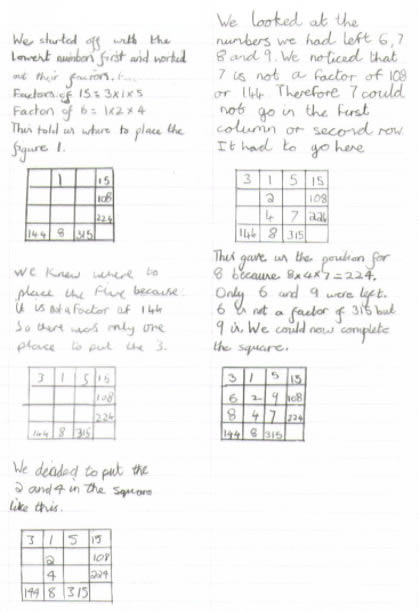 We started off with the
lowest numbers first and worked
out their factors.
Factors of 15 = 3x1x5
Factors of 8 = 1x2x4
This told us where to place the
figure 1.
1 15
108
224
144 8 315
We knew where to
place the five because
it is not a factor of 144
So there was only one
place to put the 3.
3 1 5 15
108
224
144 8 315
We decided to put the
2 and 4 in the square
like this.
3 1 5 15
2 108
4 224
144 8 315
We looked at the
numbers we had left 6, 7
8 and 9. We noticed that
7 is not a factor of 108
or 144. Therefore 7 could
not go in the first
column or second row
It had to go here
3 1 5 15
2 108
4 7 224
144 8 315
This gave us the position for
8 because 8x4x7=224.
Only 6 and 9 were left.
6 is not a factor of 315 but
9 is. We could now complete
the square.
3 1 5 15
6 2 9 108
8 4 7 224
144 8 315